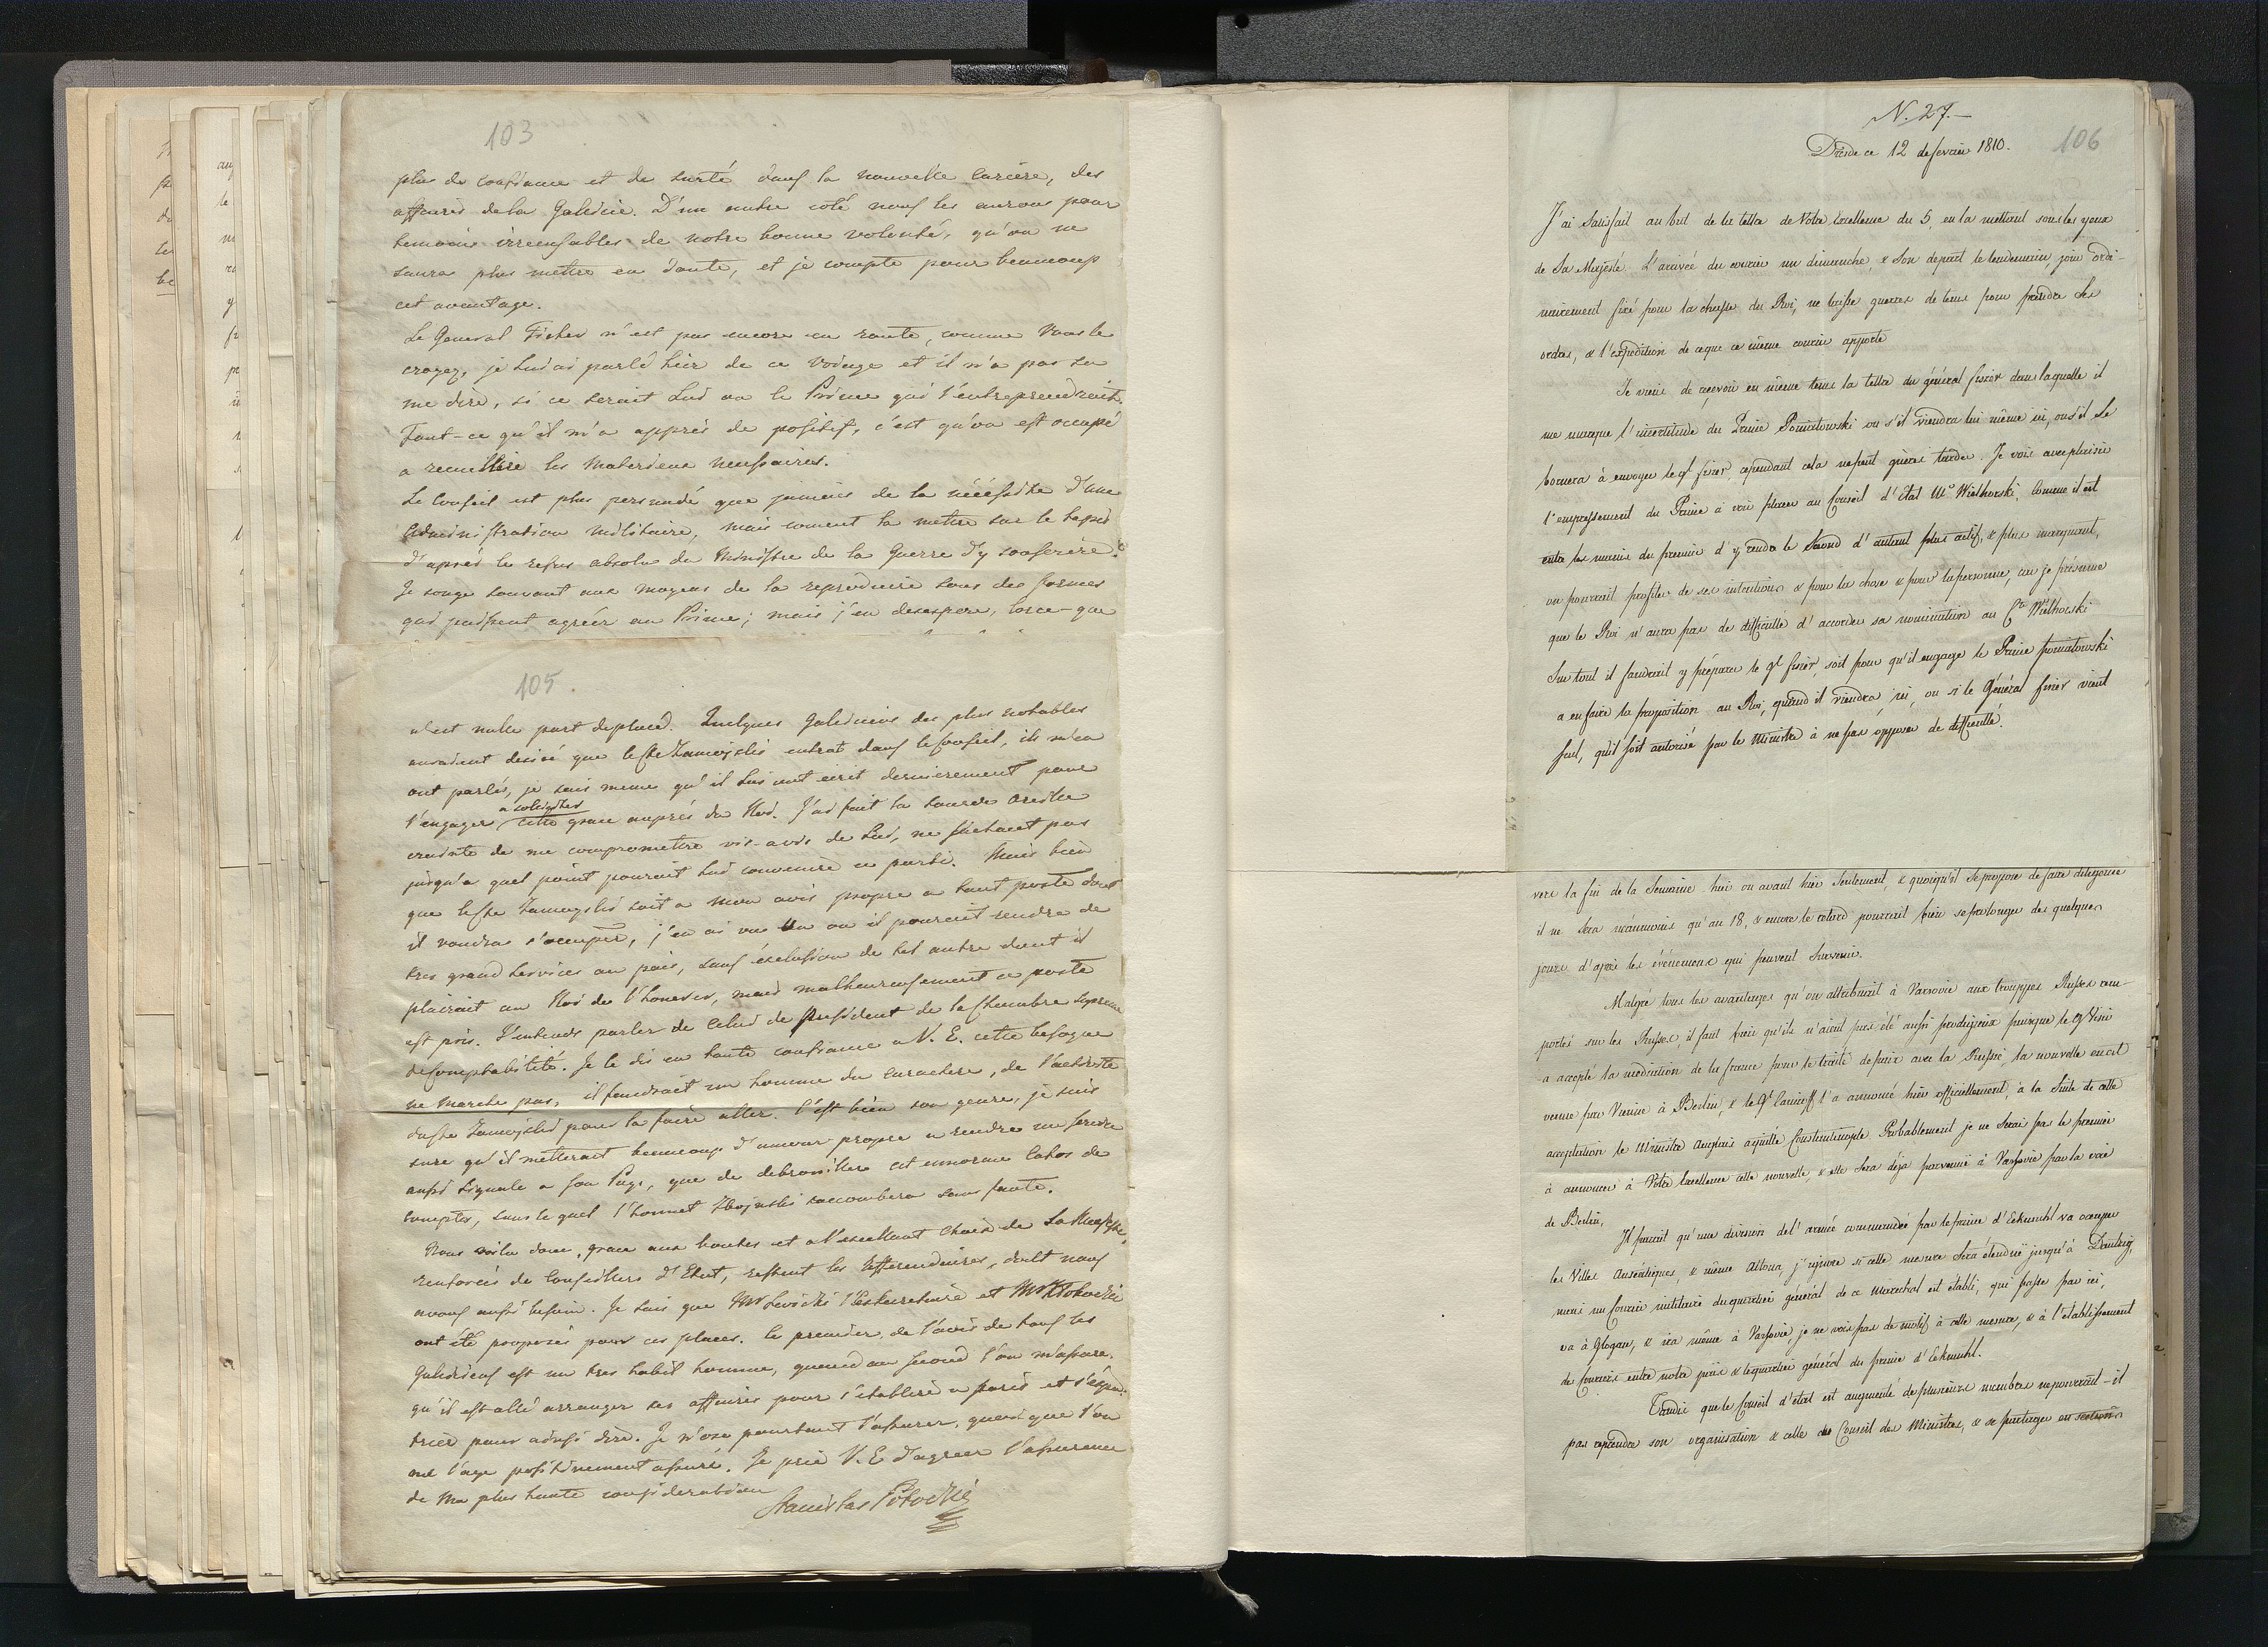 103
plus de confiance et de sureté dans la nouvelle cariere, des
affaires de la Galicie. D'un autre coté nous les aurons pour
temoins irrecusables de notre bonne volonté, qu'on ne
saura plus mettre en doute, et je compte pour beaucoup
cet avantage.
Le General Ficher n'est pas encore en route, comme Vous le
croyez, je lui ai parlé hier de ce voiage et il n'a pas su
me dire, si ce serait lui ou le Prince qui l'entreprendrait.
Tout-ce qu'il m'a appris de positif, c'est qu'on est occupé
a recueillire les materieaux necessaires.
Le Conseil est plus persuadé que jamais de la nécéssité d'une
Administration militaire, mais coment la mettre sur le tapis
d'après le refus absolu du Ministre de la Guerre d'y conserire.
Je songe souvent aux moyens de la reproduire sous des formes
qui puissent agréér au Prince; mais j'en desespere, lorce-que
105.
n'est nulle part deplacé. Quelques Galiciens des plus notables
auraient desiré que le Cte Zamoyski entrat dans le Conseil, ils m'en
ont parlés, je sais meme qu'il lui ont ecrit dernierement pour
a soliciter
l'engager cette grace auprés du Roi. J'ai fait la sourde oreille
crainte de me comprometre vis-avis de lui, ne sachant pas
jusqu'a quel point pourait lui convenir ce parti. Mais bien
que le Cte Zamoyski soit a mon avis propre a tout poste dont
il voudra s'occuper, j'en ai vue un ou il pouroit rendre de
tres grand services au pais, sans exclusion de tel autre dont il
plairait au Roi de l'honorer, mais malheureusement ce poste
est pris. J'entends parler de celui de président de la Chambre supreme
de Comptabilité. Je le dis en toute confiance a V. E. cette besogne
ne marche pas, il faudrait un homme du caractere, de l'activité
du Cte Zamoyski pour la faire aller. C'est bien son genre, je suis
sure qu'il metterait beaucoup d'amour propre a rendre un service
aussi signale a son Pays, que de debrouiller cet ennorme cahos de
comptes, sous le quel l'honnet Zboinski succombera sans faute.
Nous voila donc, grace aux bontes et a l'excellant choix de Sa Majesté,
renforcés de Conseillers d'Etat, restent les Refferendaires, dont nous
avons aussi besoin. Je sais que Mr Lewicki l'exsecretaire et Mr Klokocki
ont été proposés pour ces places. le premier, de l'avis de tous les
Galiciens est un tres habil homme, quand au second l'on m'assure
qu'il est allé arranger ses affaires pour s'etablire a Paris et s'expa-
trier pour ainsi dire. Je n'ose pourtant l'assurer, quoi que l'on
me l'aye positivement assuré. Je prie V. E d'agreer l'assurance
de Ma plus haute consideration
Stanislas Potocki
N. 27.
106
Dresde ce 12 de fevrier 1810.
J'ai satisfait au but de la lettre de Votre Excellence du 5, en la mettant sous les yeux
de Sa Majesté. L'arrivée du courier un dimanche, & son depart le lendemain, jour ordi-
nairement fixé pour la chasse du Roi, ne laisse gueres de tems pour prendre Ses
ordres, & l'expedition de ce que ce même courier apporte
Je viens de recevoir en même tems la lettre du général fiszer dans laquelle il
me marque l'incertitude du Prince Poniatowski ou s'il viendra lui même ici, ou s'il Se
bornera à envoyer le gl fiszer, cependant cela ne peut guères tarder. Je vois avec plaisir
l'empressement du Prince à voir placer au Conseil d'état Mr Wielhorski, Comme il est
entre les mains du premier d'y rendre le Second d'autant plus actif, & plus marquant,
on pourrait profiter de ses intentions & pour la chose & pour la personne, car je présume
que le Roi n'aura pas de difficulté d'accorder sa nomination au Cte Wielhorski
Sur tout il faudrait y préparer le gl fiszer, soit pour qu'il engage le Prince poniatowski
a en faire la proposition au Roi, quand il viendra ici, ou si le Général fiszer vient
seul, qu'il soit autorisé par le Ministre à ne pas opposer de difficulté.
vers la fin de la Semaine hier ou avant hier seulement, & quoiqu'il se propose de faire diligence
il ne sera néanmoins qu'au 18, & encore le retard pourrait bien se prolonger de quelques
jours d'après les événemens qui peuvent Survenir.
Malgré tous les avantages qu'on attribuait à Varsovie aux trouppes Russes rem-
portés sur les Russes, il faut bien qu'ils n'aient pas été aussi prodigieux puisque le gd Visir
a accepté la médiation de la france pour le traité de paix avec la Russie, la nouvelle en est
venue par Vienne à Berlin, & le gl l'a annoncé hier officiellement, à la Suite de cette
acceptation le Ministre Anglais a quitté Constantinople. Probablement je ne Serai pas le premier
à annoncer à Votre Excellence cette nouvelle, & elle Sera déja parvenue à Varsovie par la voie
de Berlin.
Il parait qu'une division de l'armée commandée par le prince d'Eckmuhl va occuper
les Villes Anséatiques, & même Altona, j'ignore si cette mesure Sera étendue jusqu'à Dantzig,
mais un Courier militaire du quartier général de ce Marechal est établi, qui passe par ici,
va à Glogau, & ira même à Varsovie, je ne vois pas de motif à cette mesure, & à l'établissement
de Couriers entre notre païs & le quartier général du prince d'Eckmuhl.
Tandis que le Conseil d'état est augmenté de plusieurs membres ne pourrait-il
pas reprendre son organisation & celle du Conseil des Ministres, & se partager en sections